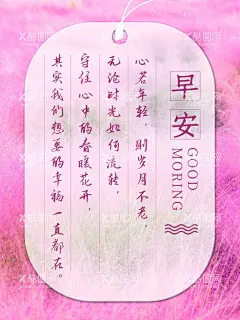 早安
GOOD
MORING
心若年轻，则岁月不老，
无论时光如何流转，
守住心中的春暖花开，
其实我们想要的幸福一直都在。